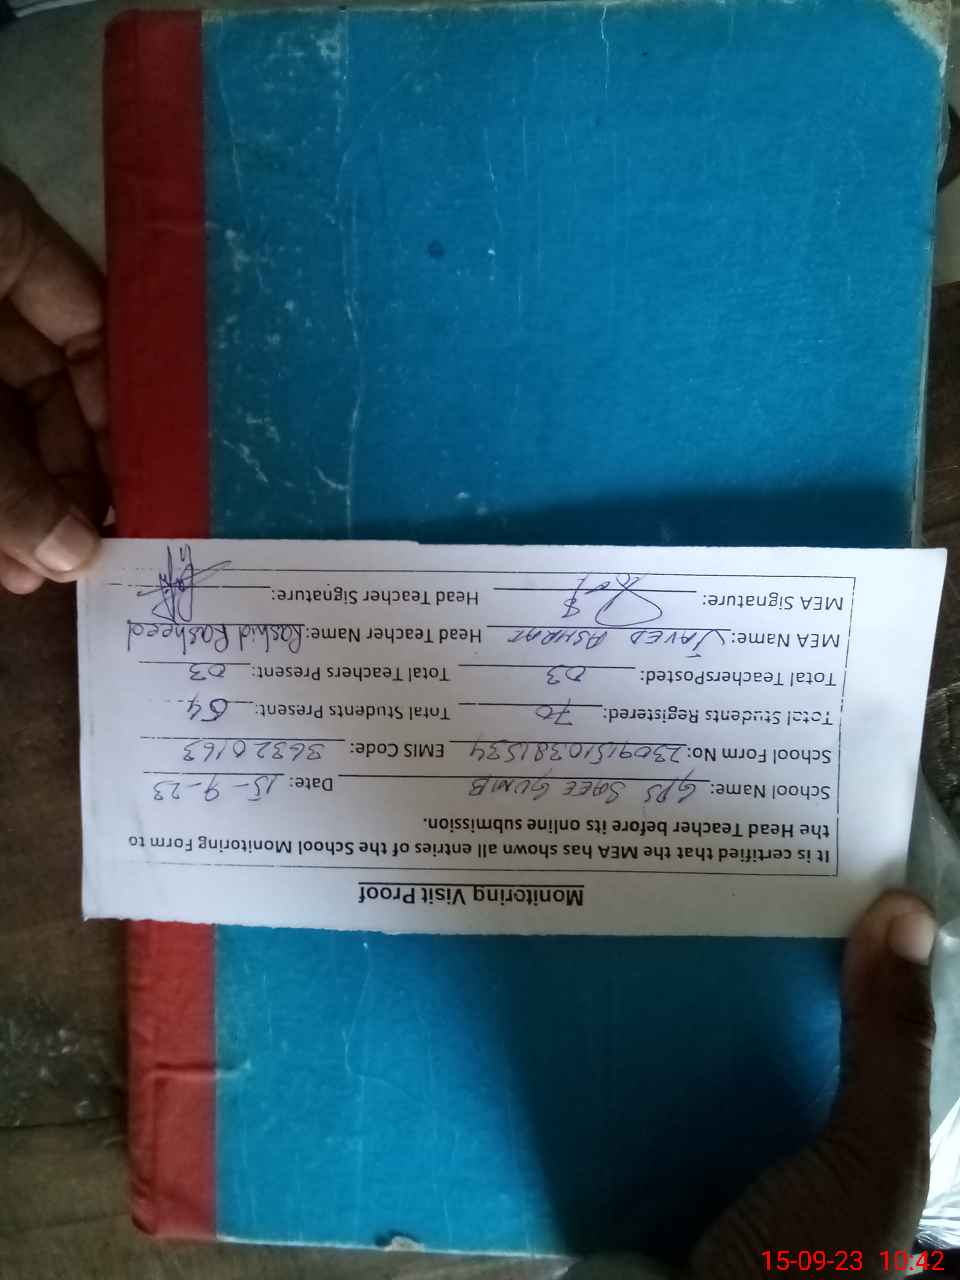 Monitoring Visit Proof
It is certified that the MEA has shown all entries of the School Monitoring Form to
the Head Teacher before its online submission.
School Name: GPS SAEE GUMB Date: 15-9-23
School Form No: 23091510381534 EMIS Code: 36320163
Total Students Registered: 70 Total Students Present: 64
Total TeachersPosted: 03 Total Teachers Present: 03
MEA Name: JAVED ASHRAF Head Teacher Name: Rashid Rasheed
MEA Signature: Head Teacher Signature:
15-09-23 10:42